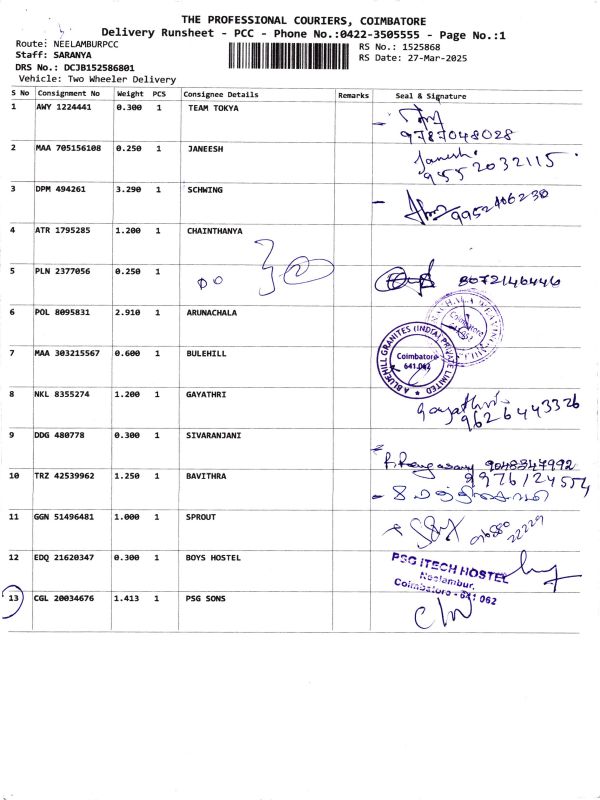 THE PROFESSIONAL COURIERS, COIMBATORE
Delivery Runsheet - PCC - Phone No.:0422-3505555 - Page No.:1
Route: NEELAMBURPCC
RS No.: 1525868
Staff: SARANYA
RS Date: 27-Mar-2025
DRS No.: DCJB152586801
Vehicle: Two Wheeler Delivery
S No Consignment No Weight PCS Consignee Details Remarks Seal & Signature
1 AWY 1224441 0.300 1 TEAM TOKYA
9787048028
2 MAA 705156108 0.250 1 JANEESH Janesh.
9552032115
3 DPM 494261 3.290 1 SCHWING
9952406230
4 ATR 1795285 1.200 1 CHAINTHANYA
5 PLN 2377056 0.250 1 8072146446
6 POL 8095831 2.910 1 ARUNACHALA
Coimbatore
7 MAA 303215567 0.600 1 BULEHILL
A BLUEHILL GRANITES (INDIA) PRIVATE LIMITED
Coimbatore
641.062
8 NKL 8355274 1.200 1 GAYATHRI Gayathri
9626443326
9 DDG 480778 0.300 1 SIVARANJANI
9048347992
10 TRZ 42539962 1.250 1 BAVITHRA 9976124554
11 GGN 51496481 1.000 1 SPROUT
22229
12 EDQ 21620347 0.300 1 BOYS HOSTEL
PSG iTECH HOSTEL
Neelambur,
Coimbatore - 641 062
13 CGL 20034676 1.413 1 PSG SONS